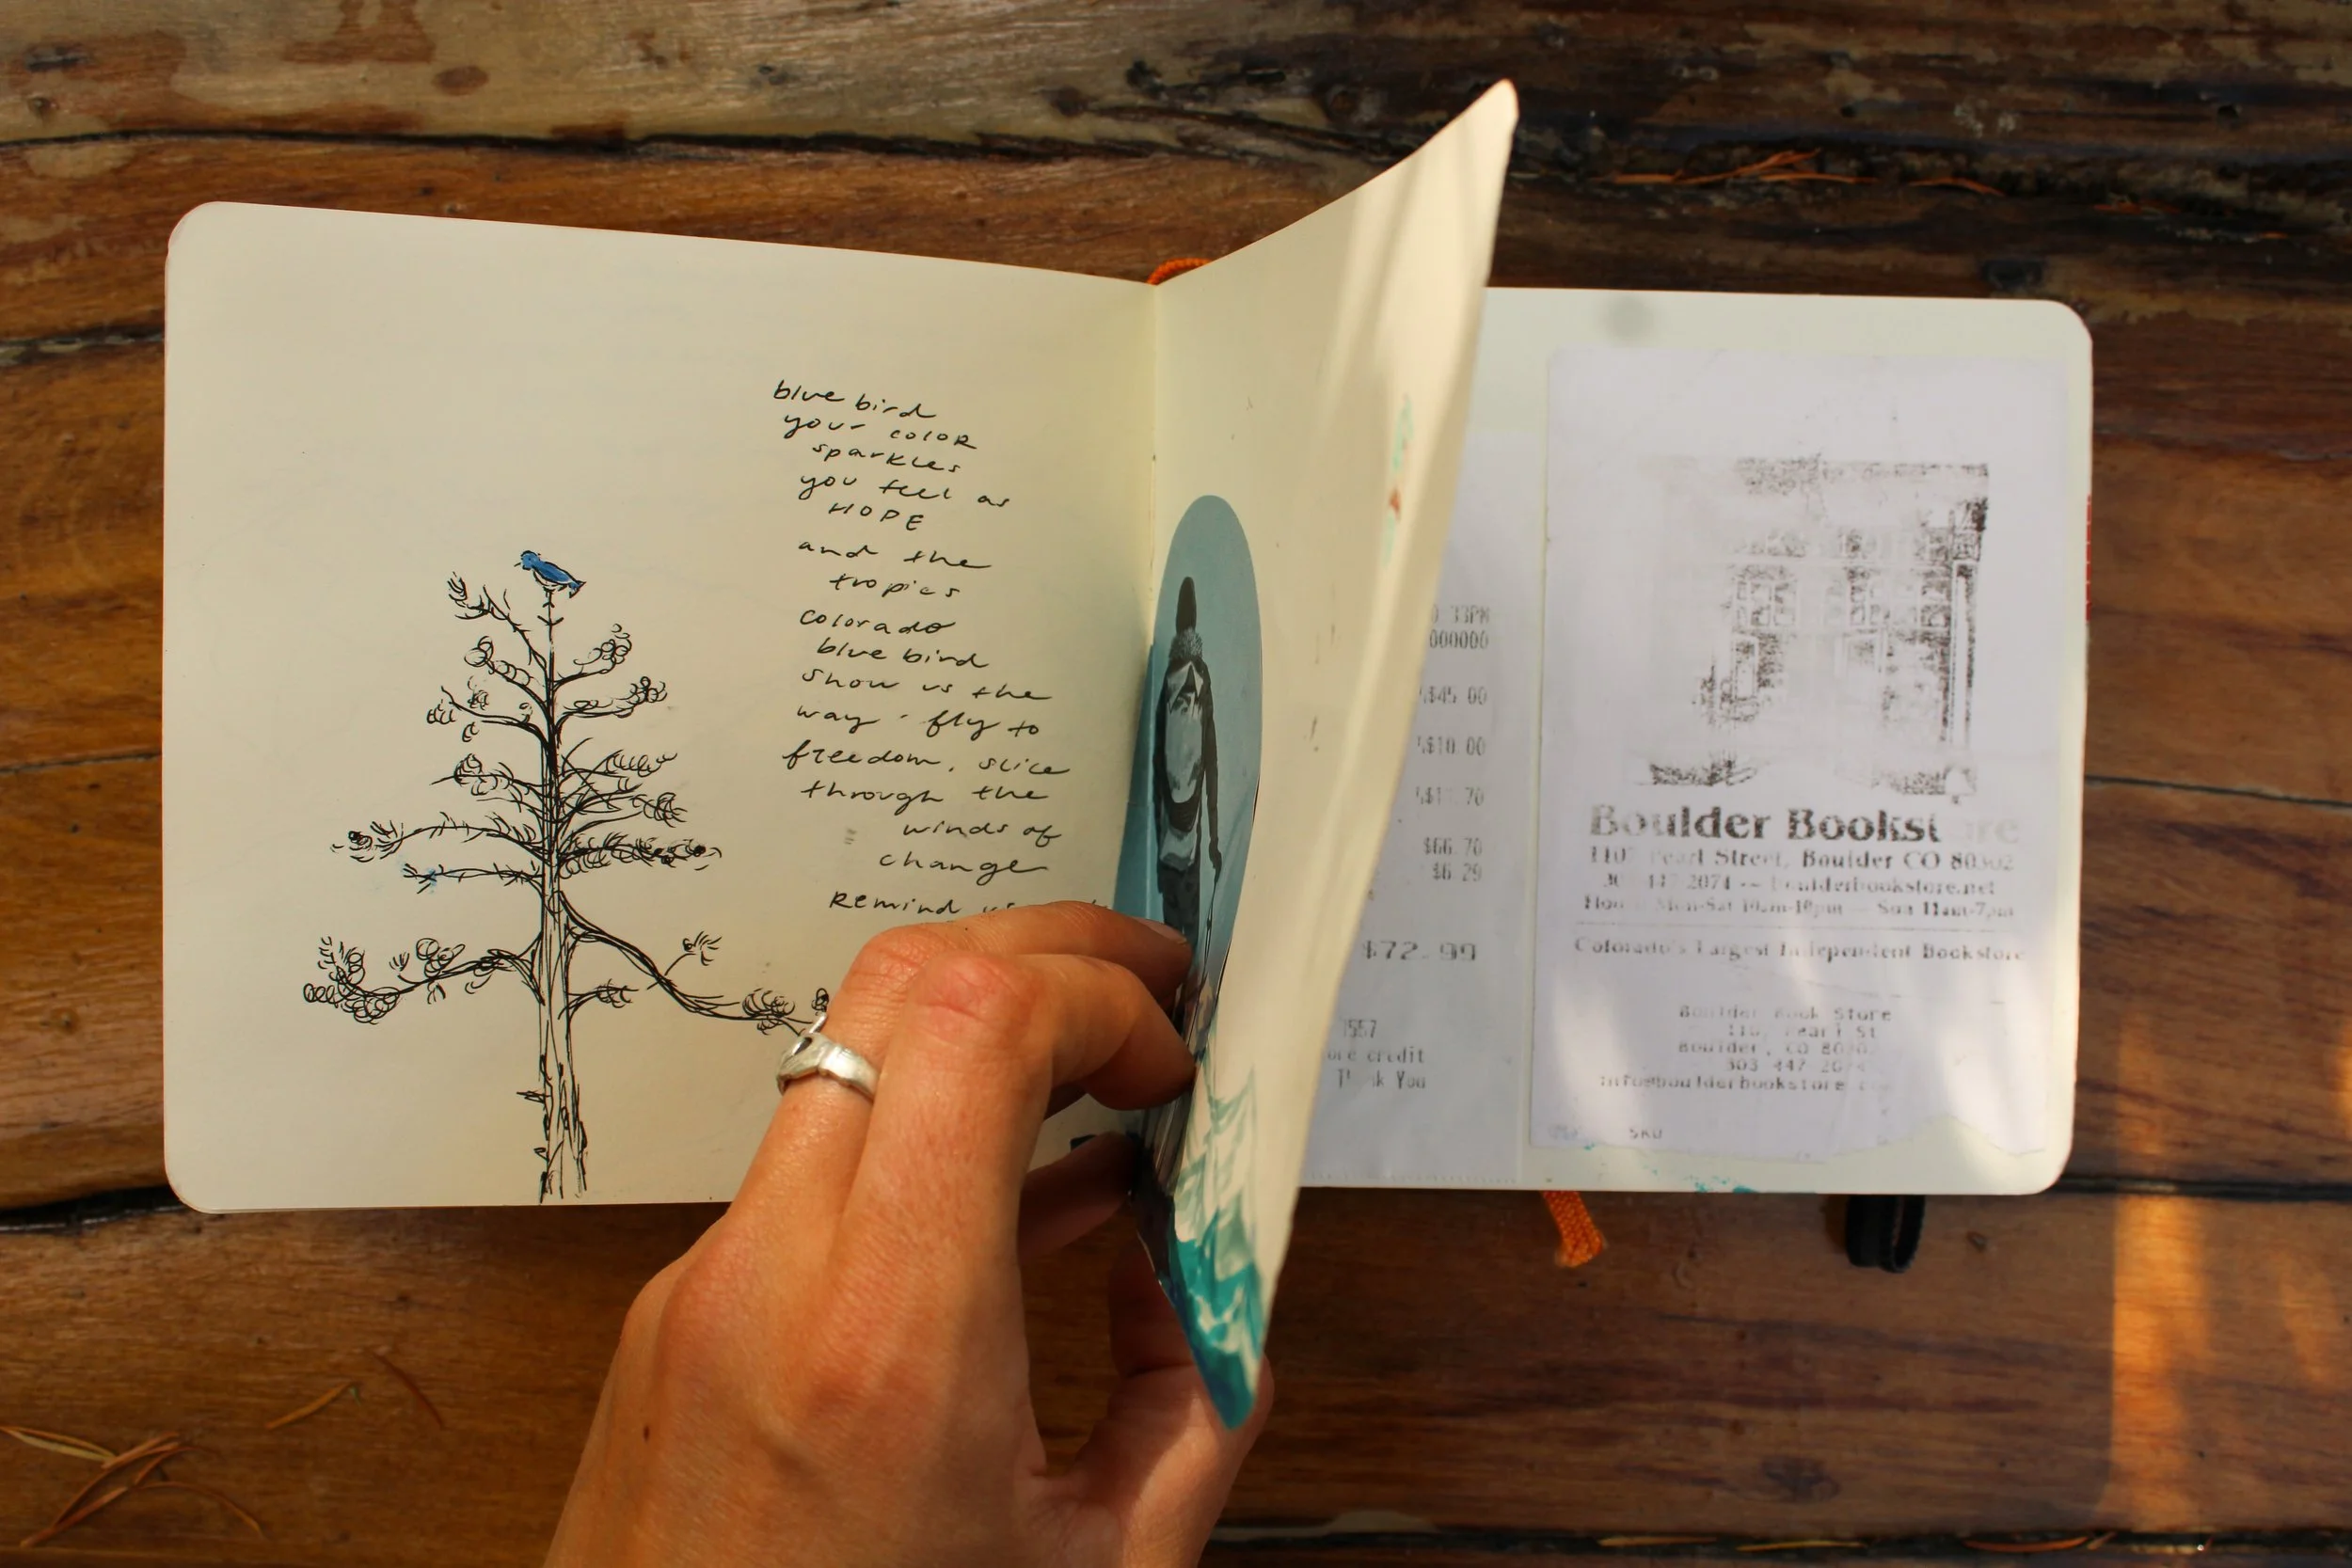 blue bird
your color
sparkles
you feel as
HOPE
and the
tropics
colorado
blue bird
show us the
way - fly to
freedom, slice
through the
winds of
change
Remind us
33PM
000000
$45.00
$10.00
$66.70
$6.29
$72.99
557
credit
You
Boulder Bookstore
Pearl Street, Boulder CO 80302
447-2074 -- boulderbookstore.net
Mon-Sat 10am-10pm -- Sun 11am-7pm
Colorado's Largest Independent Bookstore
Boulder Book Store
Pearl St
Boulder, CO
303 447
info@boulderbookstore
SKU